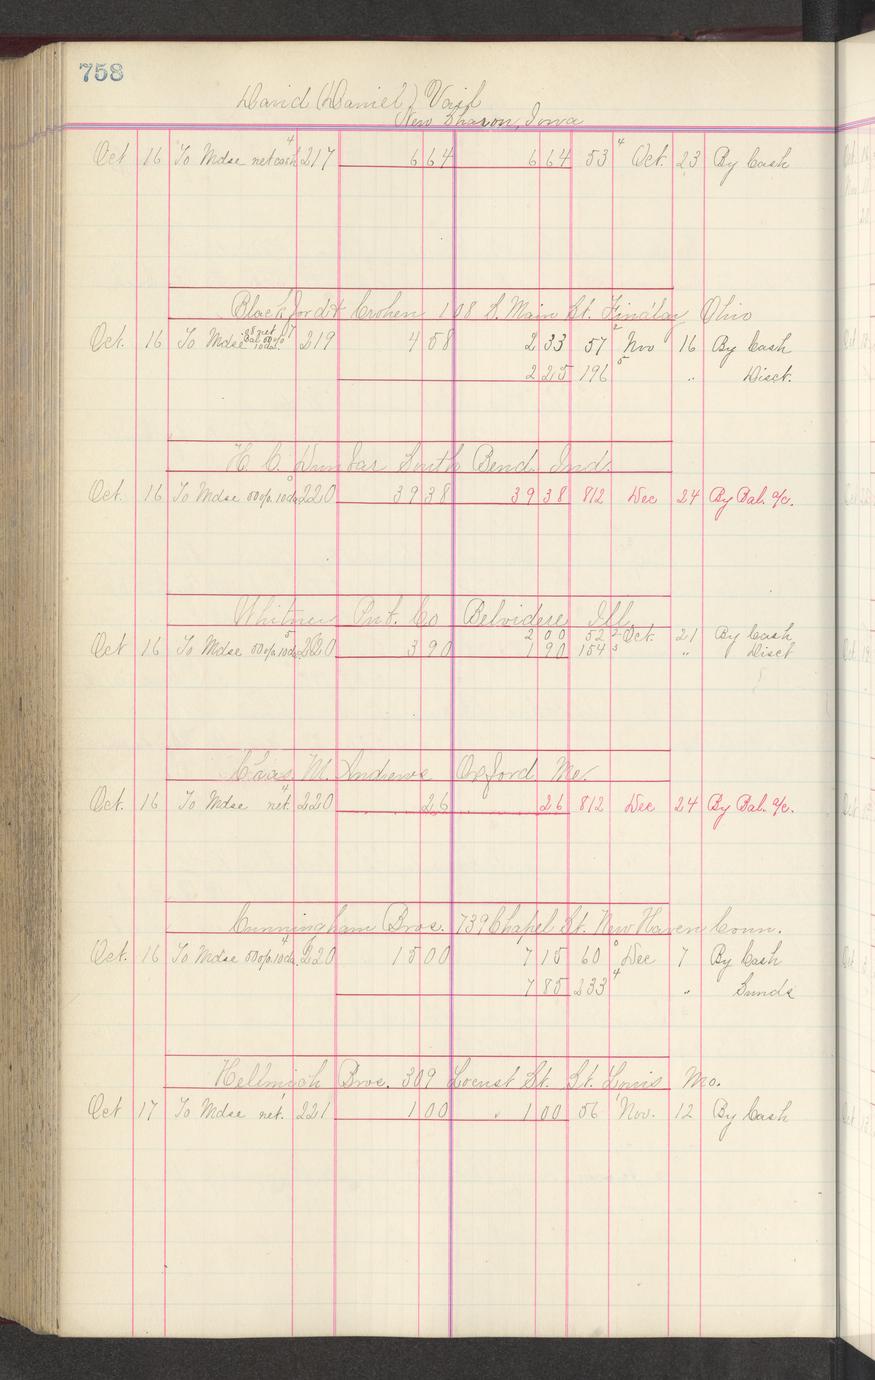 758
David (Daniel) Vail
New Sharon, Iowa
Oct 16 To Mdse net cash 4 217 6 64 6 64 53 4 Oct. 23 By Cash
108 S. Main St. Findlay Ohio
Oct. 16 To Mdse 219 4 58 2 33 57 2 Nov 16 By Cash
2 25 196 5 " Disct.
H. C. Dunbar South Bend Ind.
Oct. 16 To Mdse 220 39 38 39 38 812 Dec 24 By Bal. a/c.
Whitney Belvidere Ill.
2 00 52 2 Oct. 21 By Cash
Oct 16 To Mdse 5 220 3 90 1 90 154 3 " Disct
Chas. M. Andrews Oxford Me.
Oct. 16 To Mdse net. 4 220 26 26 812 Dec 24 By Bal. a/c.
Cunningham Bros. 739 Chapel St. New Haven Conn.
Oct. 16 To Mdse 4 220 15 00 7 15 60 0 Dec 7 By Cash
7 85 233 4 " Sunds
Hellmich Bros. 309 Locust St. St. Louis Mo.
Oct 17 To Mdse net. 1 221 1 00 1 00 56 1 Nov. 12 By Cash